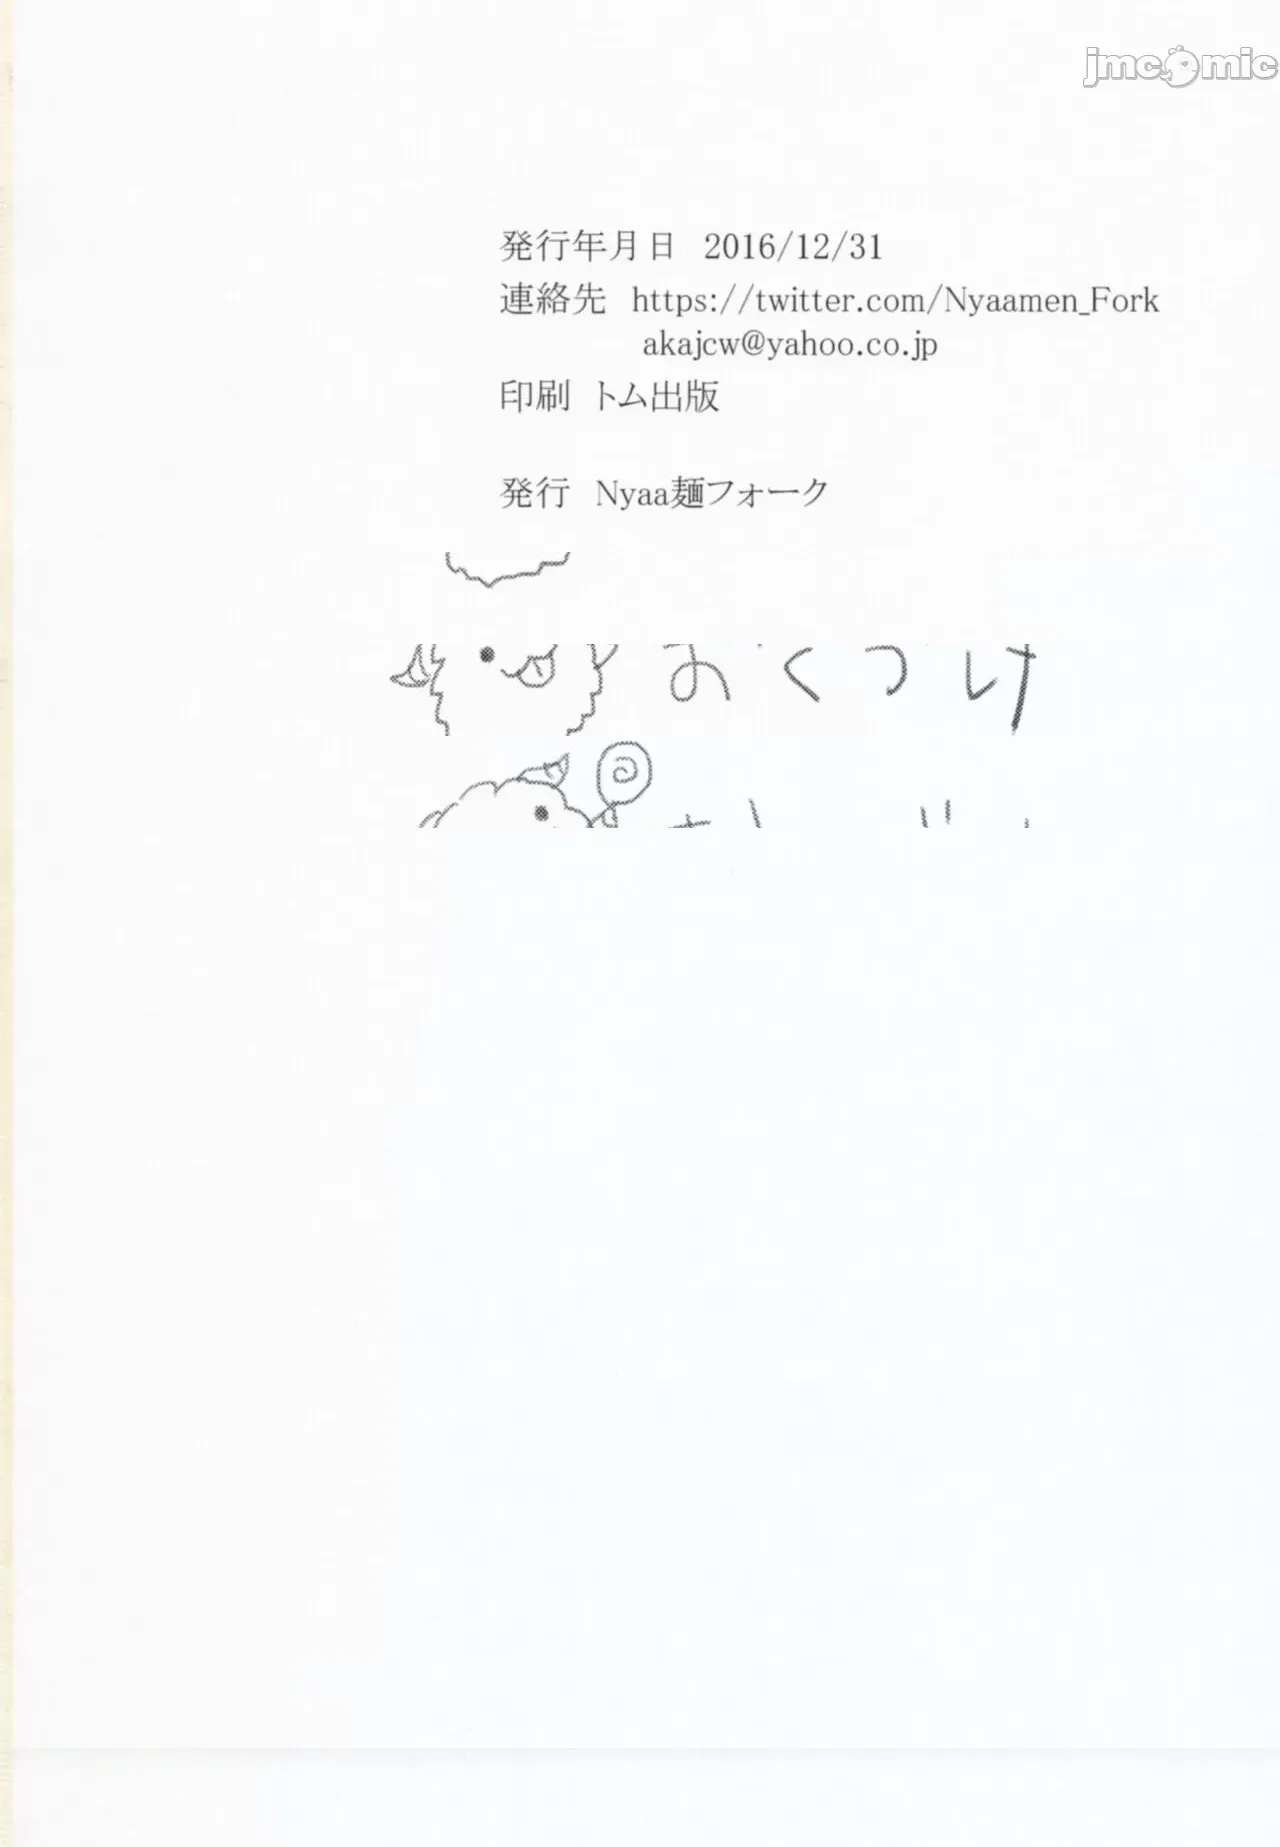 jmcomic
発行年月日 2016/12/31
連絡先 https://twitter.com/Nyaamen_Fork
akajcw@yahoo.co.jp
印刷 トム出版
発行 Nyaa麺フォーク